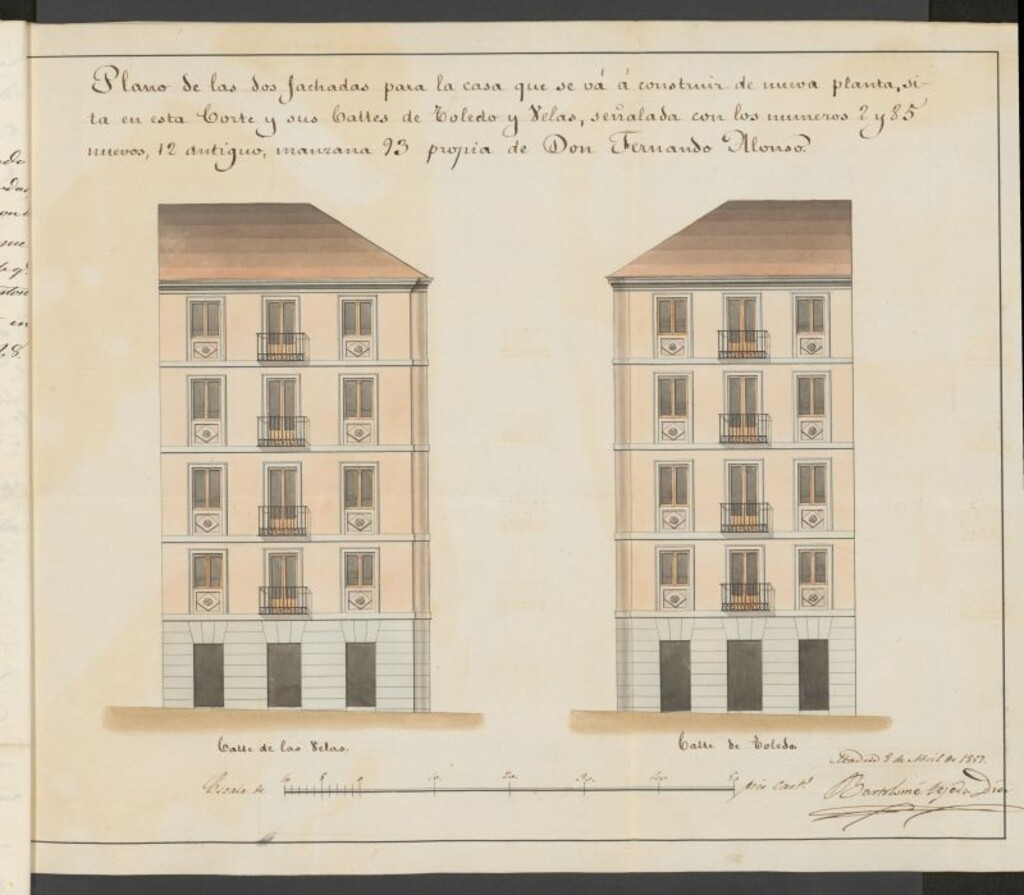 Plano de las dos fachadas para la casa que se vá á construir de nueva planta, si-
ta en esta Corte y sus Calles de Toledo y Velas, señalada con los numeros 2 y 85
nuevos, 12 antiguo, manzana 93 propia de Don Fernando Alonso.
Calle de las Velas.
Calle de Toledo.
Madrid 8 de Abril de
Escala de 10 5 0 10 20 30 40 50 pies Cast.s
Bartolomé Tejeda Diez